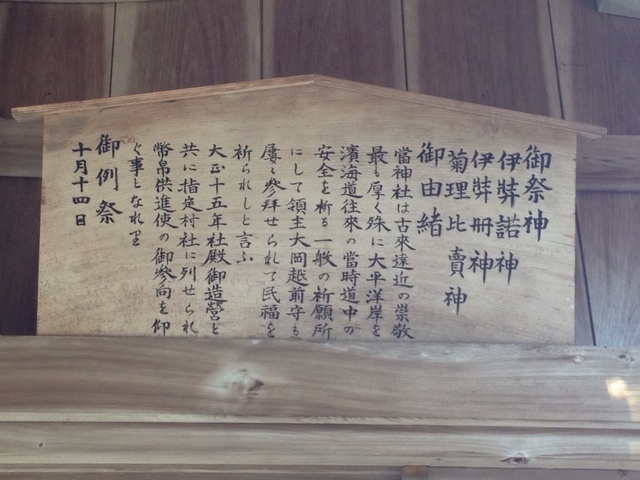 御祭神
伊弉諾神
伊弉册神
菊理比賣神
御由緒
當神社は古來遠近の崇敬
最も厚く殊に大平洋岸を
濱海道往來の當時道中の
安全を祈る一般の祈願所
にして領主大岡越前守も
屢々參拜せられて民福を
祈られしと言ふ
大正十五年社殿御造營と
共に指定村社に列せられ
幣帛供進使の御參向を仰
ぐ事となれり
御例祭
十月十四日